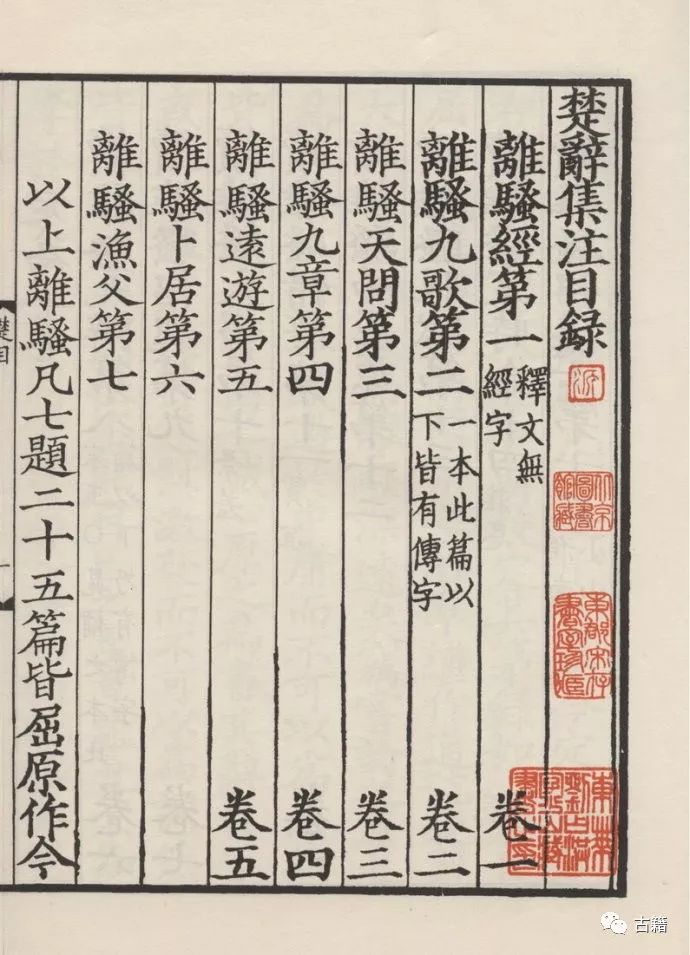 楚辭集注目録
離騷經第一 釋文無經字 卷一
離騷九歌第二 一本此篇以下皆有傳字 卷二
離騷天問第三 卷三
離騷九章第四 卷四
離騷遠遊第五 卷五
離騷卜居第六
離騷漁父第七
以上離騷凡七題二十五篇皆屈原作今
北京圖書館藏
古籍